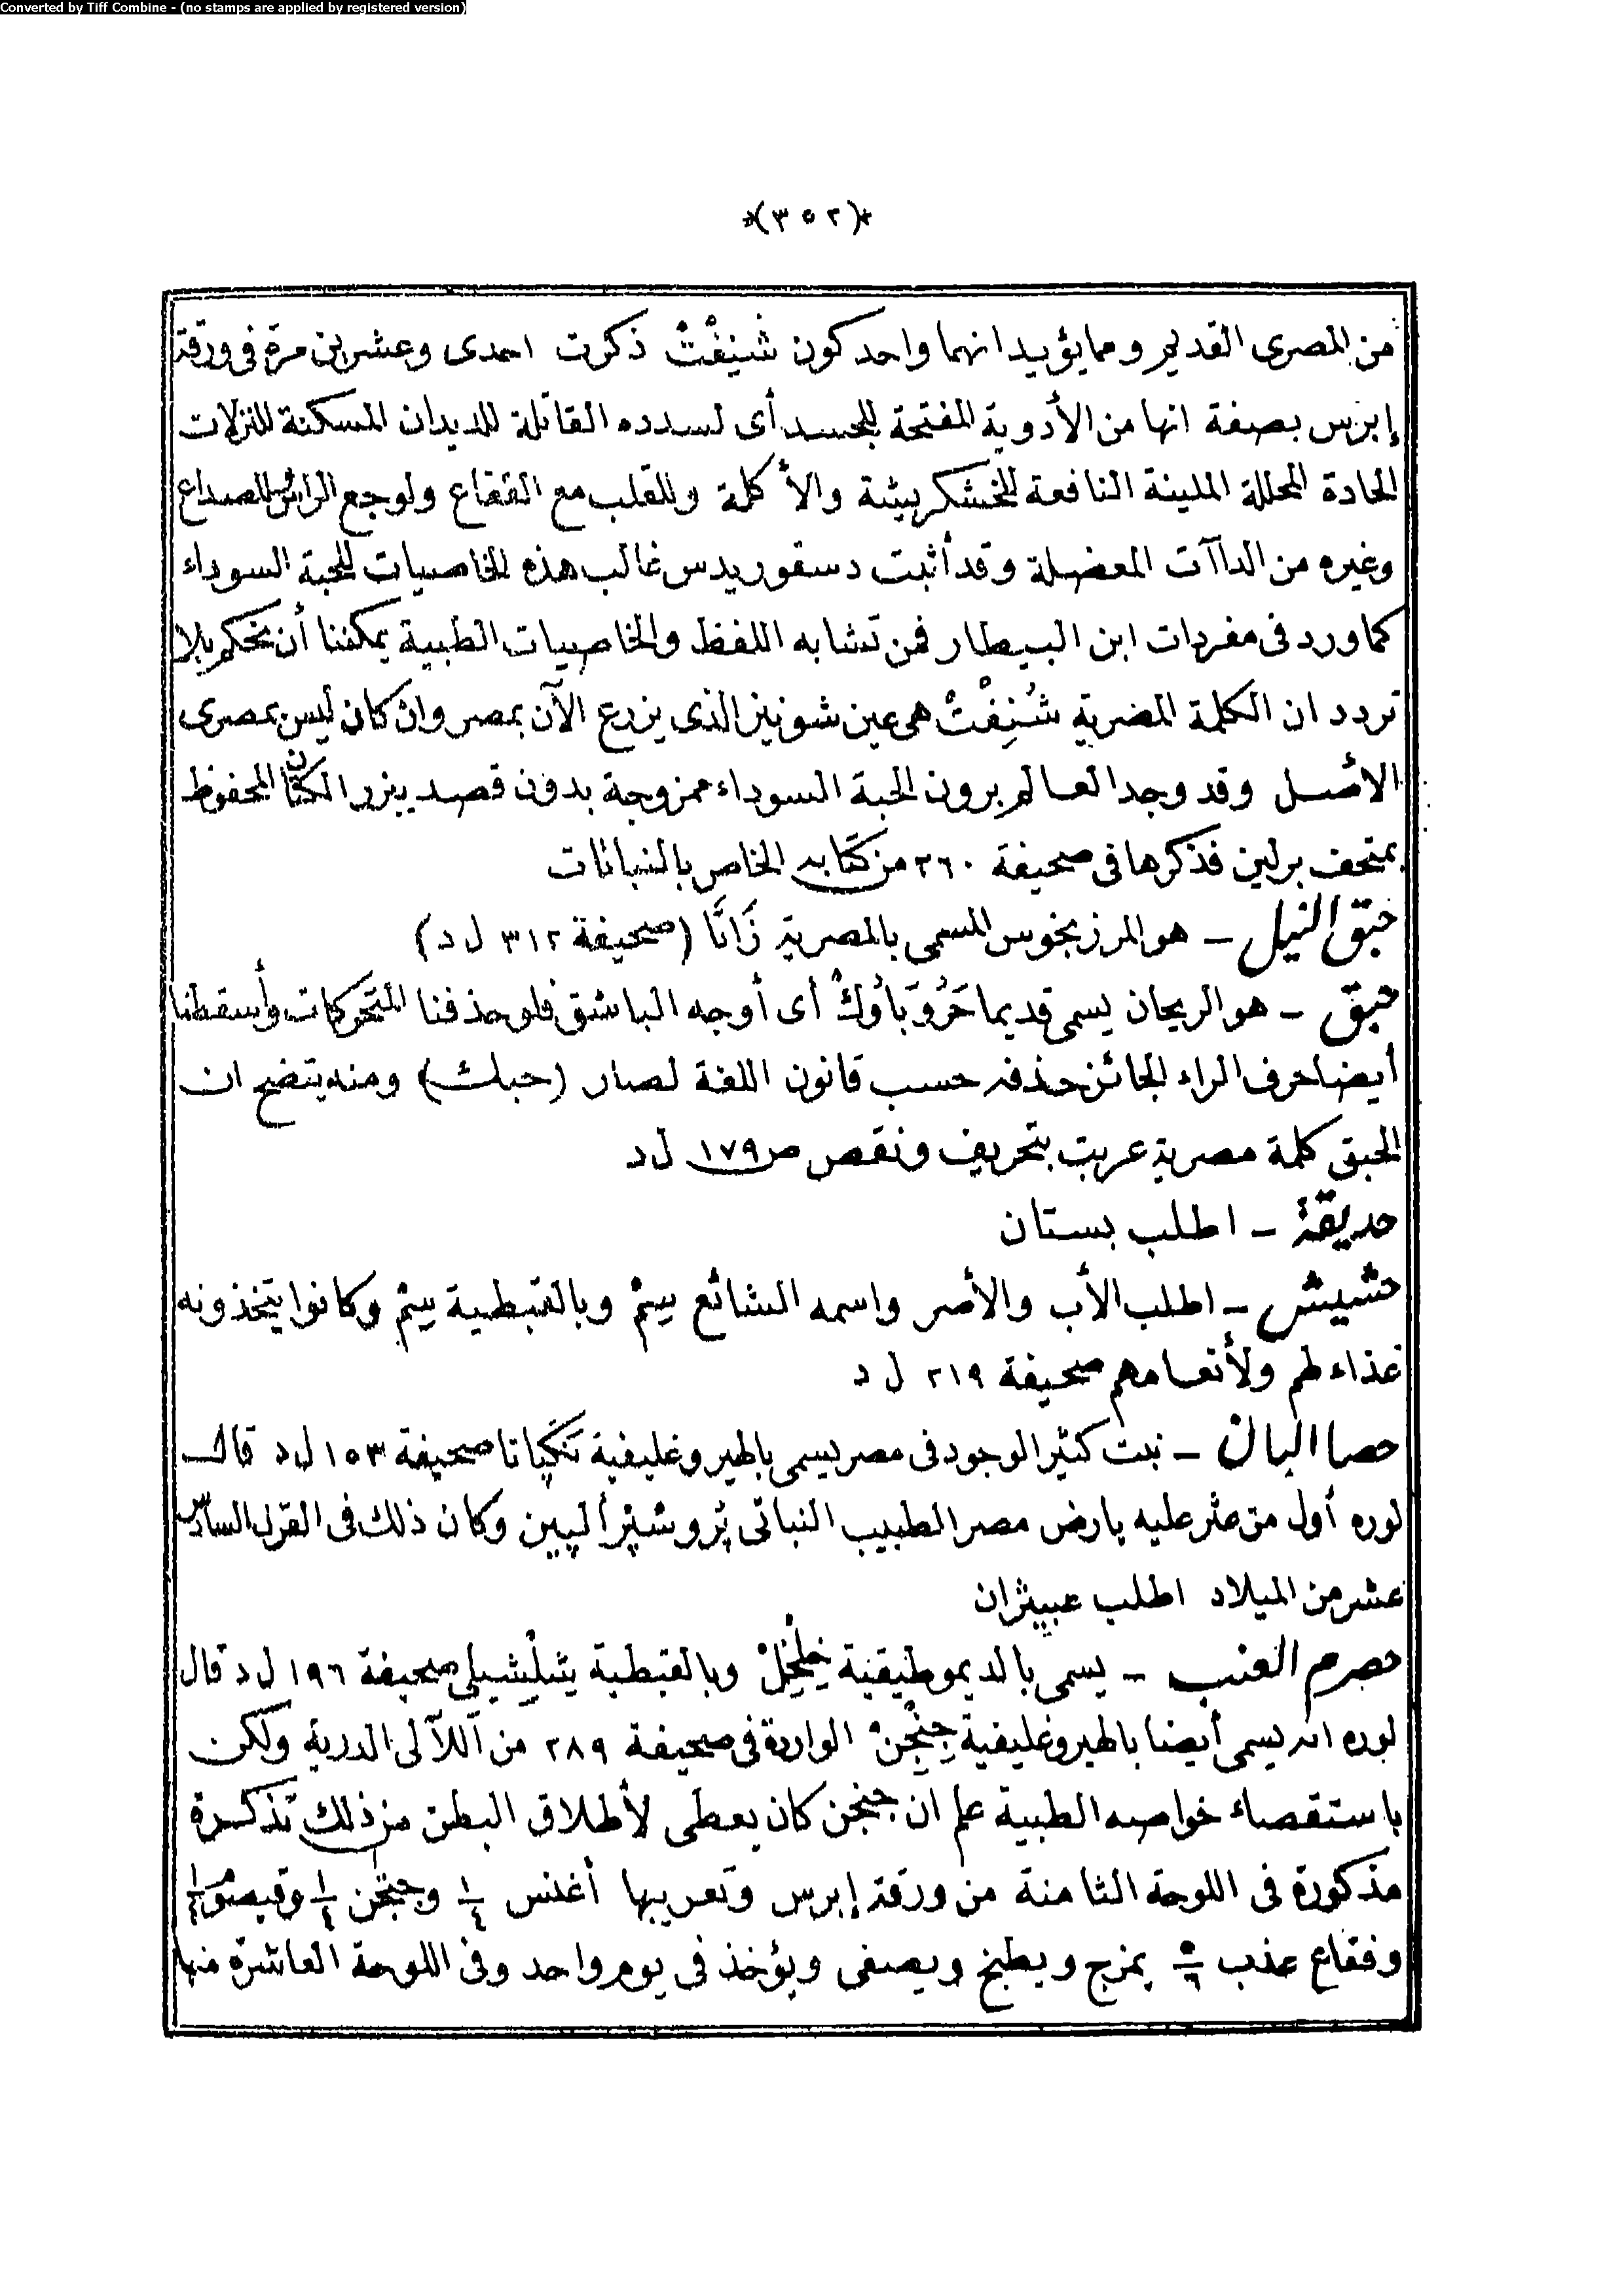 Converted by Tiff Combine - (no stamps are applied by registered version)
*(٣٥٢)*
من المصرى القديم ومما يؤيد انهما واحد كون شُنِفْتْ ذكرت احدى وعشرين مرة فى ورقة
إبرس بصفة انها من الأدوية المفتحة للجسد أى لسدده القاتلة للديدان المسكنة للنزلات
الحادة المحللة الملينة النافعة للخشكريشة والأكلة وللقلب مع الفقاع ولوجع الرأس للصداع
وغيره من الداآت المعضلة وقد أثبت دسقوريدس غالب هذه الخاصيات للحبة السوداء
كما ورد فى مفردات ابن البيطار فمن تشابه اللفظ والخاصيات الطبية يمكننا أن نحكم بلا
تردد ان الكلمة المصرية شُنِفْتْ هى عين شونيز الذى يزرع الآن بمصر وان كان ليس بمصرى
الأصل وقد وجد العالم برون الحبة السوداء ممزوجة بدون قصد ببزر الكتان المحفوظ
بمتحف برلين فذكرها فى صحيفة ٢٦٠ من كتابه الخاص بالنباتات
حبق النيل – هو المرزنجوس المسمى بالمصرية زَانَّا (صحيفة ٣١٢ ل د)
حبق – هو الريحان يسمى قديما حَرُوَبَاوُكْ أى أوجه الباشق فلو حذفنا المتحركات وأسقطنا
أيضا حرف الراء الجائز حذفه حسب قانون اللغة لصار (حبك) ومنه يتضح ان
الحبق كلمة مصرية عربت بتحريف ونقص ص ١٧٩ ل د
حديقة – اطلب بستان
حشيش – اطلب الأب والأصر واسمه الشائع سِيمْ وبالقبطية سِيمْ وكانوا يتخذونه
غذاء لهم ولأنعامهم صحيفة ٢١٩ ل د
حصا البان – نبت كثير الوجود فى مصر يسمى بالهيروغليفية نَكَپاتا صحيفة ١٥٣ ل د قال
لوره أول من عثر عليه بارض مصر الطبيب النباتى پُروسْپَر ألپين وكان ذلك فى القرن السادس
عشر من الميلاد اطلب عبيثران
حصرم العنب – يسمى بالديموطيقية خِلْخِلْ وبالقبطية يشِلْشِيلى صحيفة ١٩٦ ل د قال
لوره انه يسمى أيضا بالهيروغليفية جِنْجِنْ الواردة فى صحيفة ٢٨٩ من اللآلى الدرية ولكن
باستقصاء خواصه الطبية علم ان جنجن كان يعطى لأطلاق البطن من ذلك تذكرة
مذكورة فى اللوحة الثامنة من ورقة إبرس وتعريبها أغنس ١/٤ وجنجن ١/٤ وقيصوم
وفقاع عذب ٥/٦ يمزج ويطبخ ويصفى ويؤخذ فى يوم واحد وفى اللوحة العاشرة منها